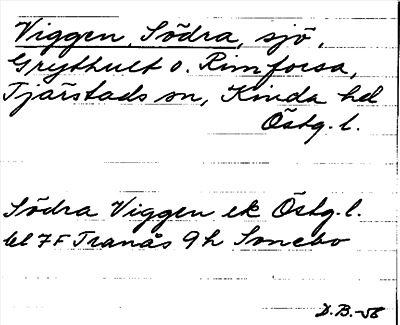 Viggen, Södra, sjö,
Grythult o. Rimforsa,
Tjärstads sn, Kinda hd
Östg. l.
Södra Viggen ek Östg. l.
bl 7F Tranås 9h Sonebo
D.B.-56